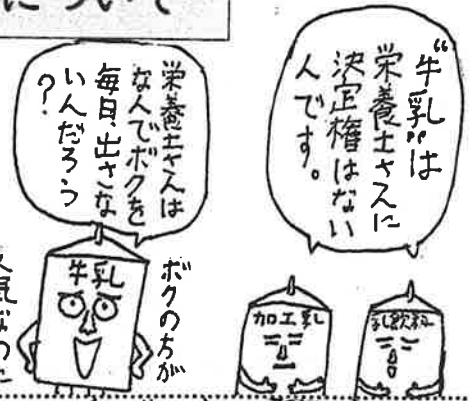 について
"牛乳"は
栄養士さんに
決定権はない
人です。
栄養士さんは
なんでボクを
毎日、出さな
いんだろう
?
ボクの方が
人気なのに
牛乳
加工乳
乳飲料